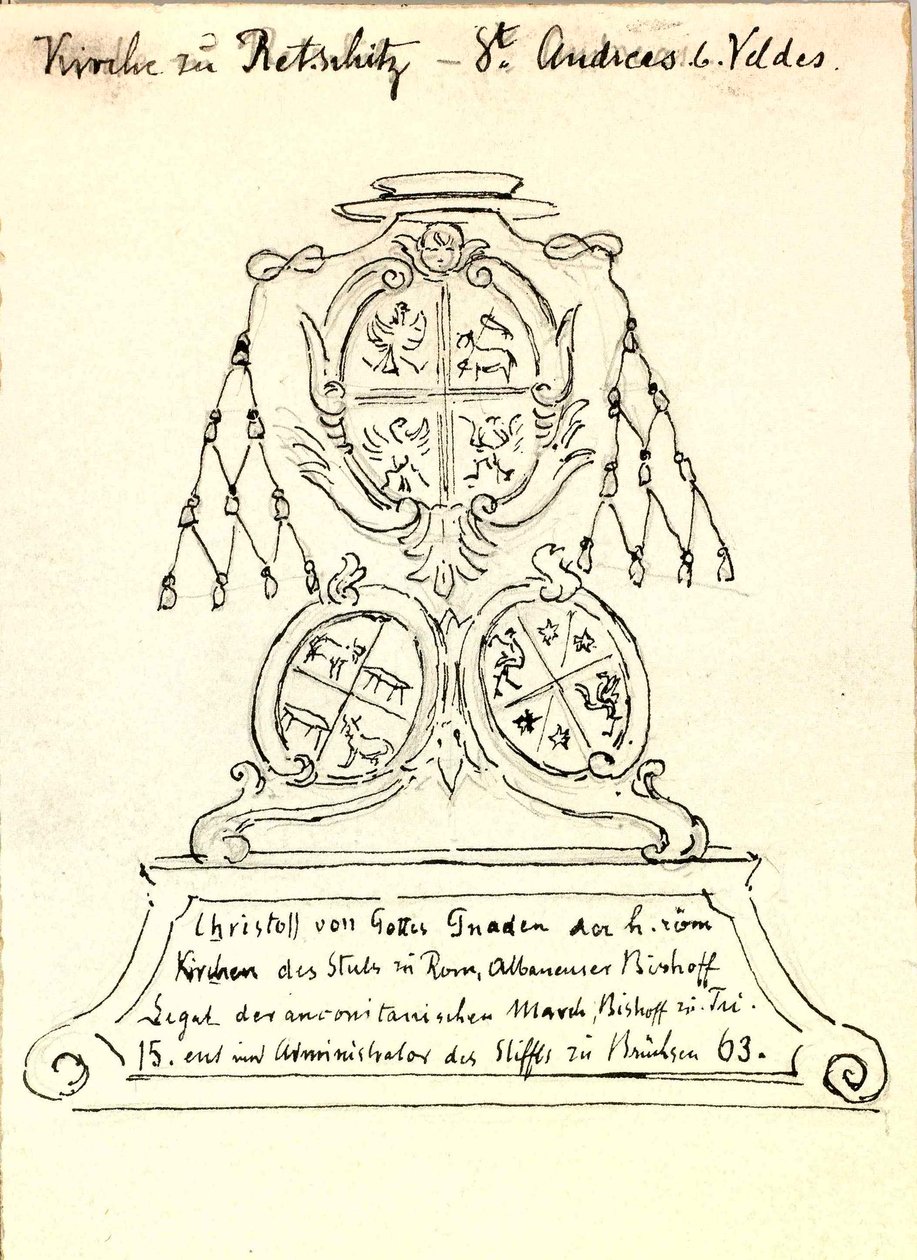 Kirche zu Retschitz – St. Andreas b. Veldes.
Christoff von Gottes Gnaden der h. röm
Kirchen des Stuls zu Rom, Albanenser Bischoff
Legat der anconitanischen March, Bishoff zu Tri.
15. ent und Administrator des Stiffts zu Brüchsen 63.